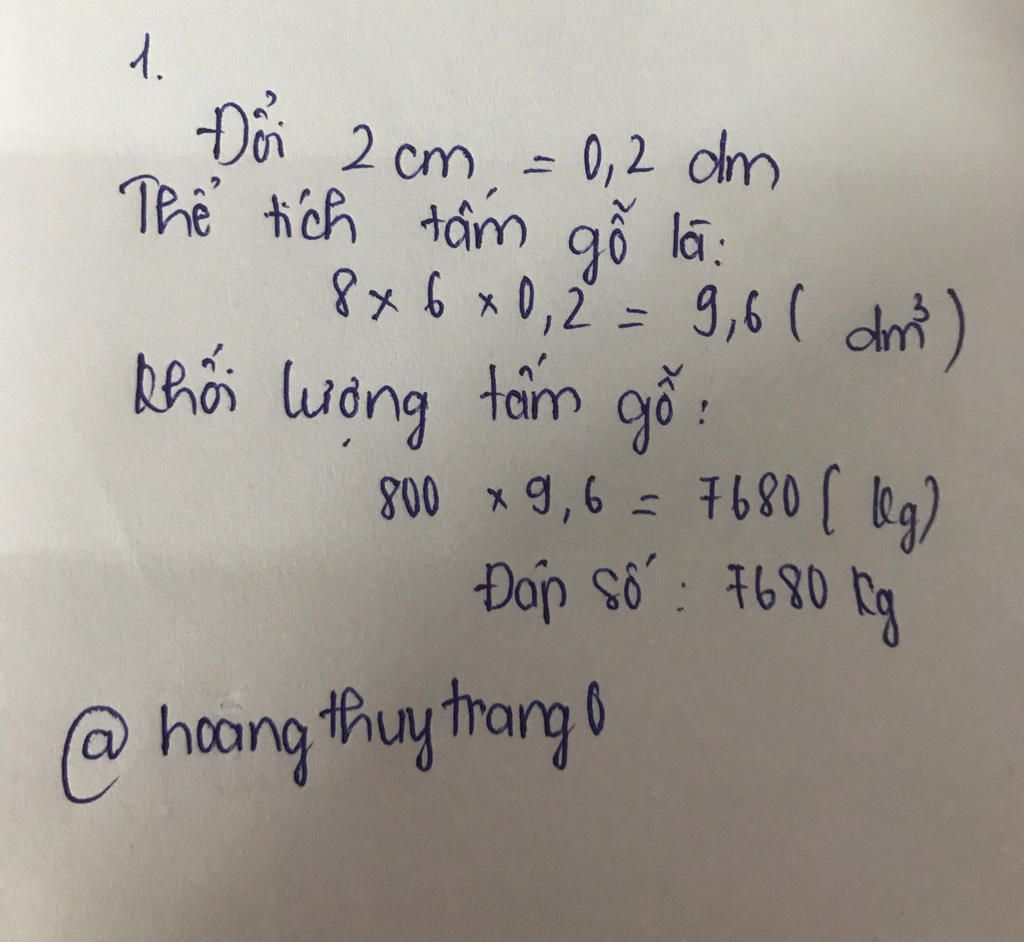 1.
Đổi 2 cm = 0,2 dm
Thể tích tấm gỗ là:
8 x 6 x 0,2 = 9,6 ( dm³)
Khối lượng tấm gỗ:
800 x 9,6 = 7680 ( kg)
Đáp số : 7680 kg
@ hoangthuytrang0